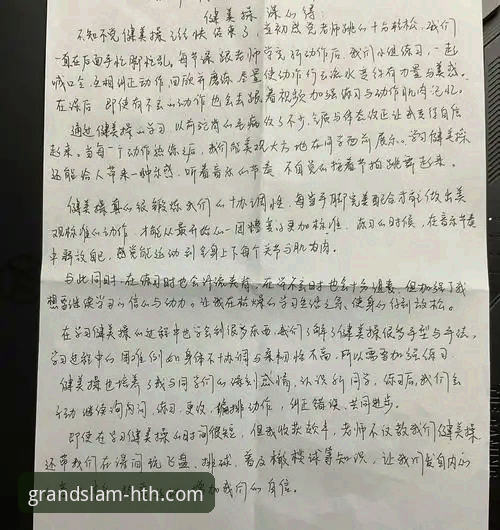 健美操课心得:
不知不觉健美操已经快结束了,当初感觉老师跳的十分轻松,我们
一直在后面手忙脚忙乱,每节课跟老师学完新动作后,我们小组练习,一起
喊口令,互相纠正动作回顾并磨练,尽量使动作行云流水变得有力量与美感。
在课后,即使有不会的动作也会去跟着视频加强练习与动作肌肉记忆。
通过健美操的学习,以前驼背的毛病改了不少,气质与体态改正让我变得自信
起来。当每一个动作熟练之后,我们能美观大方地在同学面前展示。学习健美操
还能给人带来一种乐感,听着音乐的节奏,不自觉的按着节拍跳跃起来。
健美操真的很锻炼我们的协调性,每当手脚完美配合才能做出美
观标准的动作,才能以最开始的一团糟变得更加标准,练习的时候,在音乐节奏
中释放自己,感觉能运动到全身上下每个关节与肌肉。
与此同时,在练习时也会汗流夹背,在学不会时也会十分沮丧,但加强了我
想要继续学习的信心与动力。让我在枯燥的学习生活之余,使身心得到放松。
在学习健美操的过程中也学会到很多东西,我们了解了健美操很多手型与手法,
学习过程中的困难例如身体不协调与柔韧性不高,所以需要加强练习
健美操也培养了我与同学们的深刻感情,认识新同学,练习后,我们会
主动继续询问,练习,更改,编排动作,纠正错误,共同进步。
即使在学习健美操的时间很短,但我收获颇丰,老师不仅教我们健美操
还带我们在课间玩飞盘、排球、普及橄榄球等知识,让我们发自内心
增加我们的自信。
grandslam-hth.com